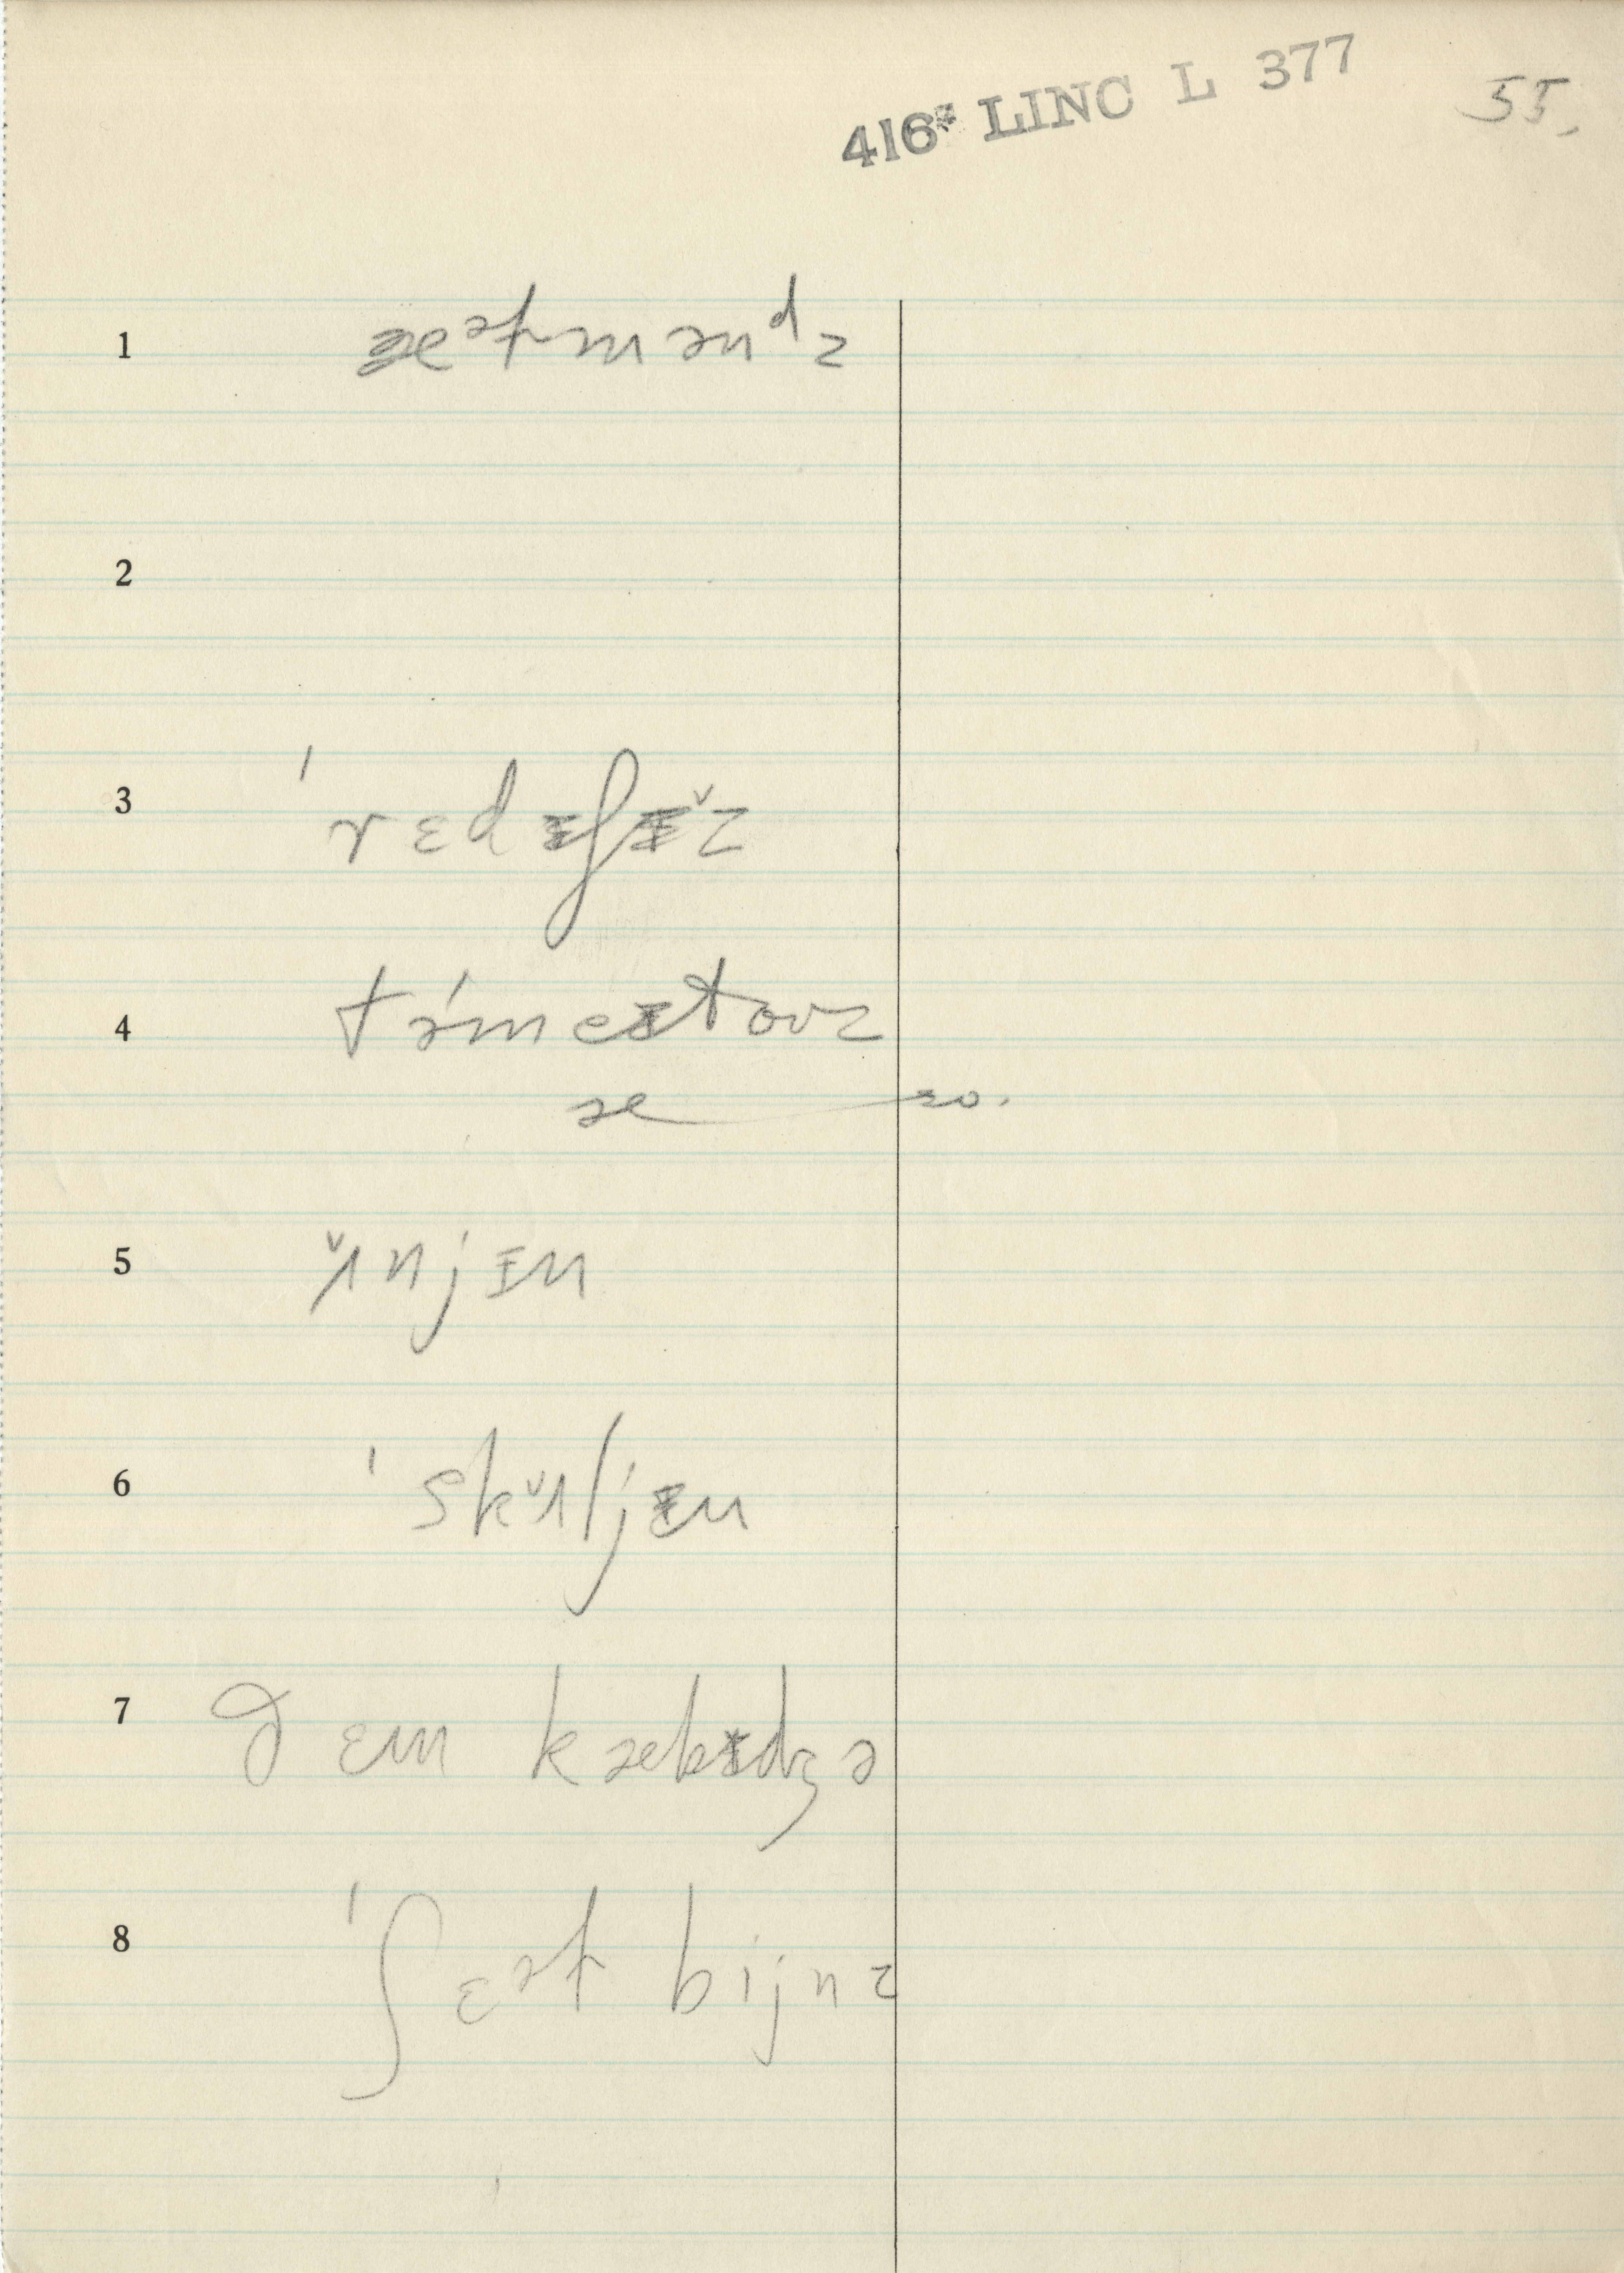 416* LINC L 377 55.
1 æᵊtmənᵈz
2
3 ˈrɛdɪʃɪ̌z
4 təˊmeɪtovz
æ ——— so.
5 ʌ̌njɪn
6 ˈskʌ̌ljɪn
7 ðɛm kæbɪdʒə
8 ˈʃɛᵊt bijnz